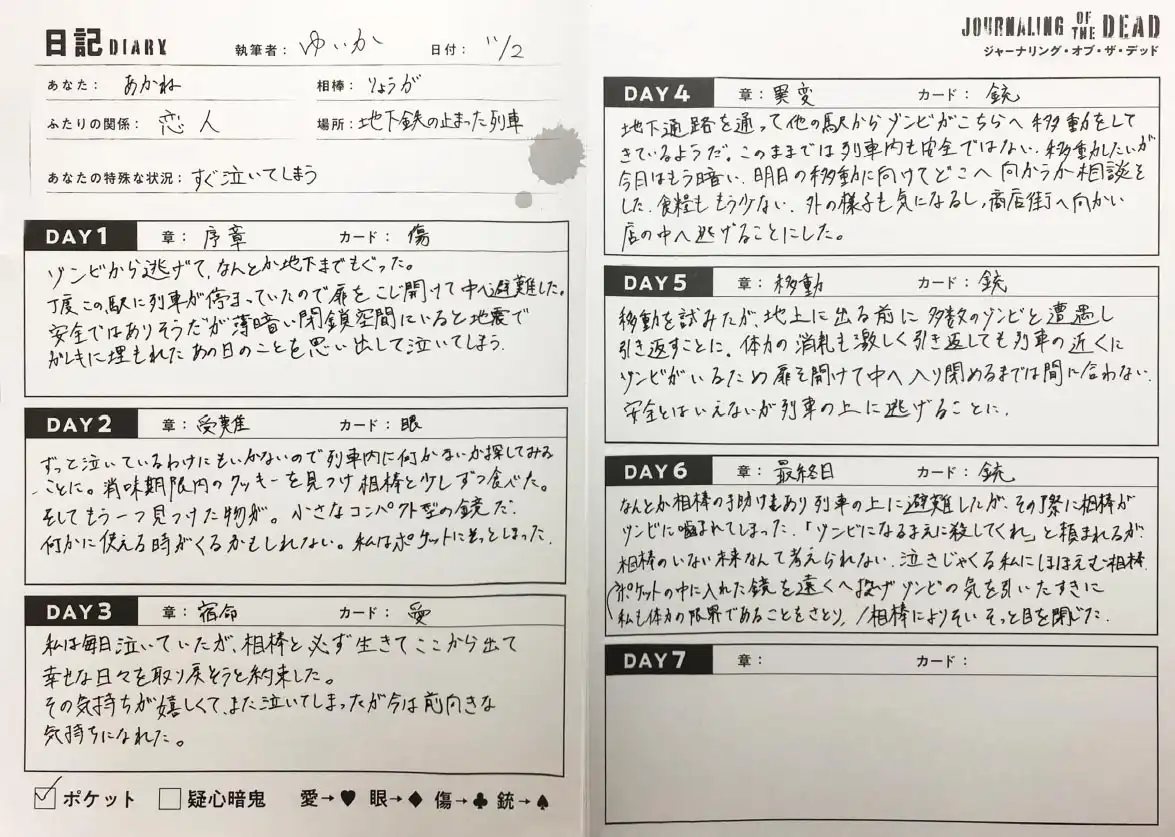 日記 DIARY 執筆者： ゆいか 日付： 11/2
あなた： あかね 相棒： りょうが
ふたりの関係： 恋人 場所： 地下鉄の止まった列車
あなたの特殊な状況： すぐ泣いてしまう
DAY1 章： 序章 カード： 傷
ゾンビから逃げて、なんとか地下までもぐった。
丁度この駅に列車が停まっていたので扉をこじ開けて中へ避難した。
安全ではありそうだが薄暗い閉鎖空間にいると地震で
ガレキに埋もれたあの日のことを思い出して泣いてしまう.
DAY2 章： 受難 カード： 眼
ずっと泣いているわけにもいかないので列車内に何かないか探してみる
ことに。消味期限内のクッキーを見つけ相棒と少しずつ食べた。
そしてもう一つ見つけた物が。小さなコンパクト型の鏡だ.
何かに使える時がくるかもしれない。私はポケットにそっとしまった.
DAY3 章： 宿命 カード： 愛
私は毎日泣いていたが、相棒と必ず生きてここから出て
幸せな日々を取り戻そうと約束した。
その気持ちが嬉しくて、また泣いてしまったが今は前向きな
気持ちになれた。
ポケット 疑心暗鬼 愛→♥ 眼→♦ 傷→♣ 銃→♠
JOURNALING OF THE DEAD
ジャーナリング・オブ・ザ・デッド
DAY4 章： 異変 カード： 銃
地下通路を通って他の駅からゾンビがこちらへ移動をして
きているようだ。このままでは列車内も安全ではない. 移動したいが
今日はもう暗い. 明日の移動に向けてどこへ向かうか相談を
した. 食糧ももう少ない. 外の様子も気になるし, 商店街へ向かい
店の中へ逃げることにした。
DAY5 章： 移動 カード： 銃
移動を試みたが、地上に出る前に多数のゾンビと遭遇し
引き返すことに. 体力の消耗も激しく引き返しても列車の近くに
ゾンビがいるため扉を開けて中へ入り閉めるまでは間に合わない.
安全とはいえないが列車の上に逃げることに.
DAY6 章： 最終日 カード： 銃
なんとか相棒の手助けもあり列車の上に避難したが、その際に相棒が
ゾンビに噛まれてしまった. 「ゾンビになるまえに殺してくれ」と頼まれるが
相棒のいない未来なんて考えられない. 泣きじゃくる私にほほえむ相棒.
ポケットの中に入れた鏡を遠くへ投げゾンビの気を引いたすきに
私も体力の限界であることをさとり, 相棒によりそいそっと目を閉じた.
DAY7 章： カード：